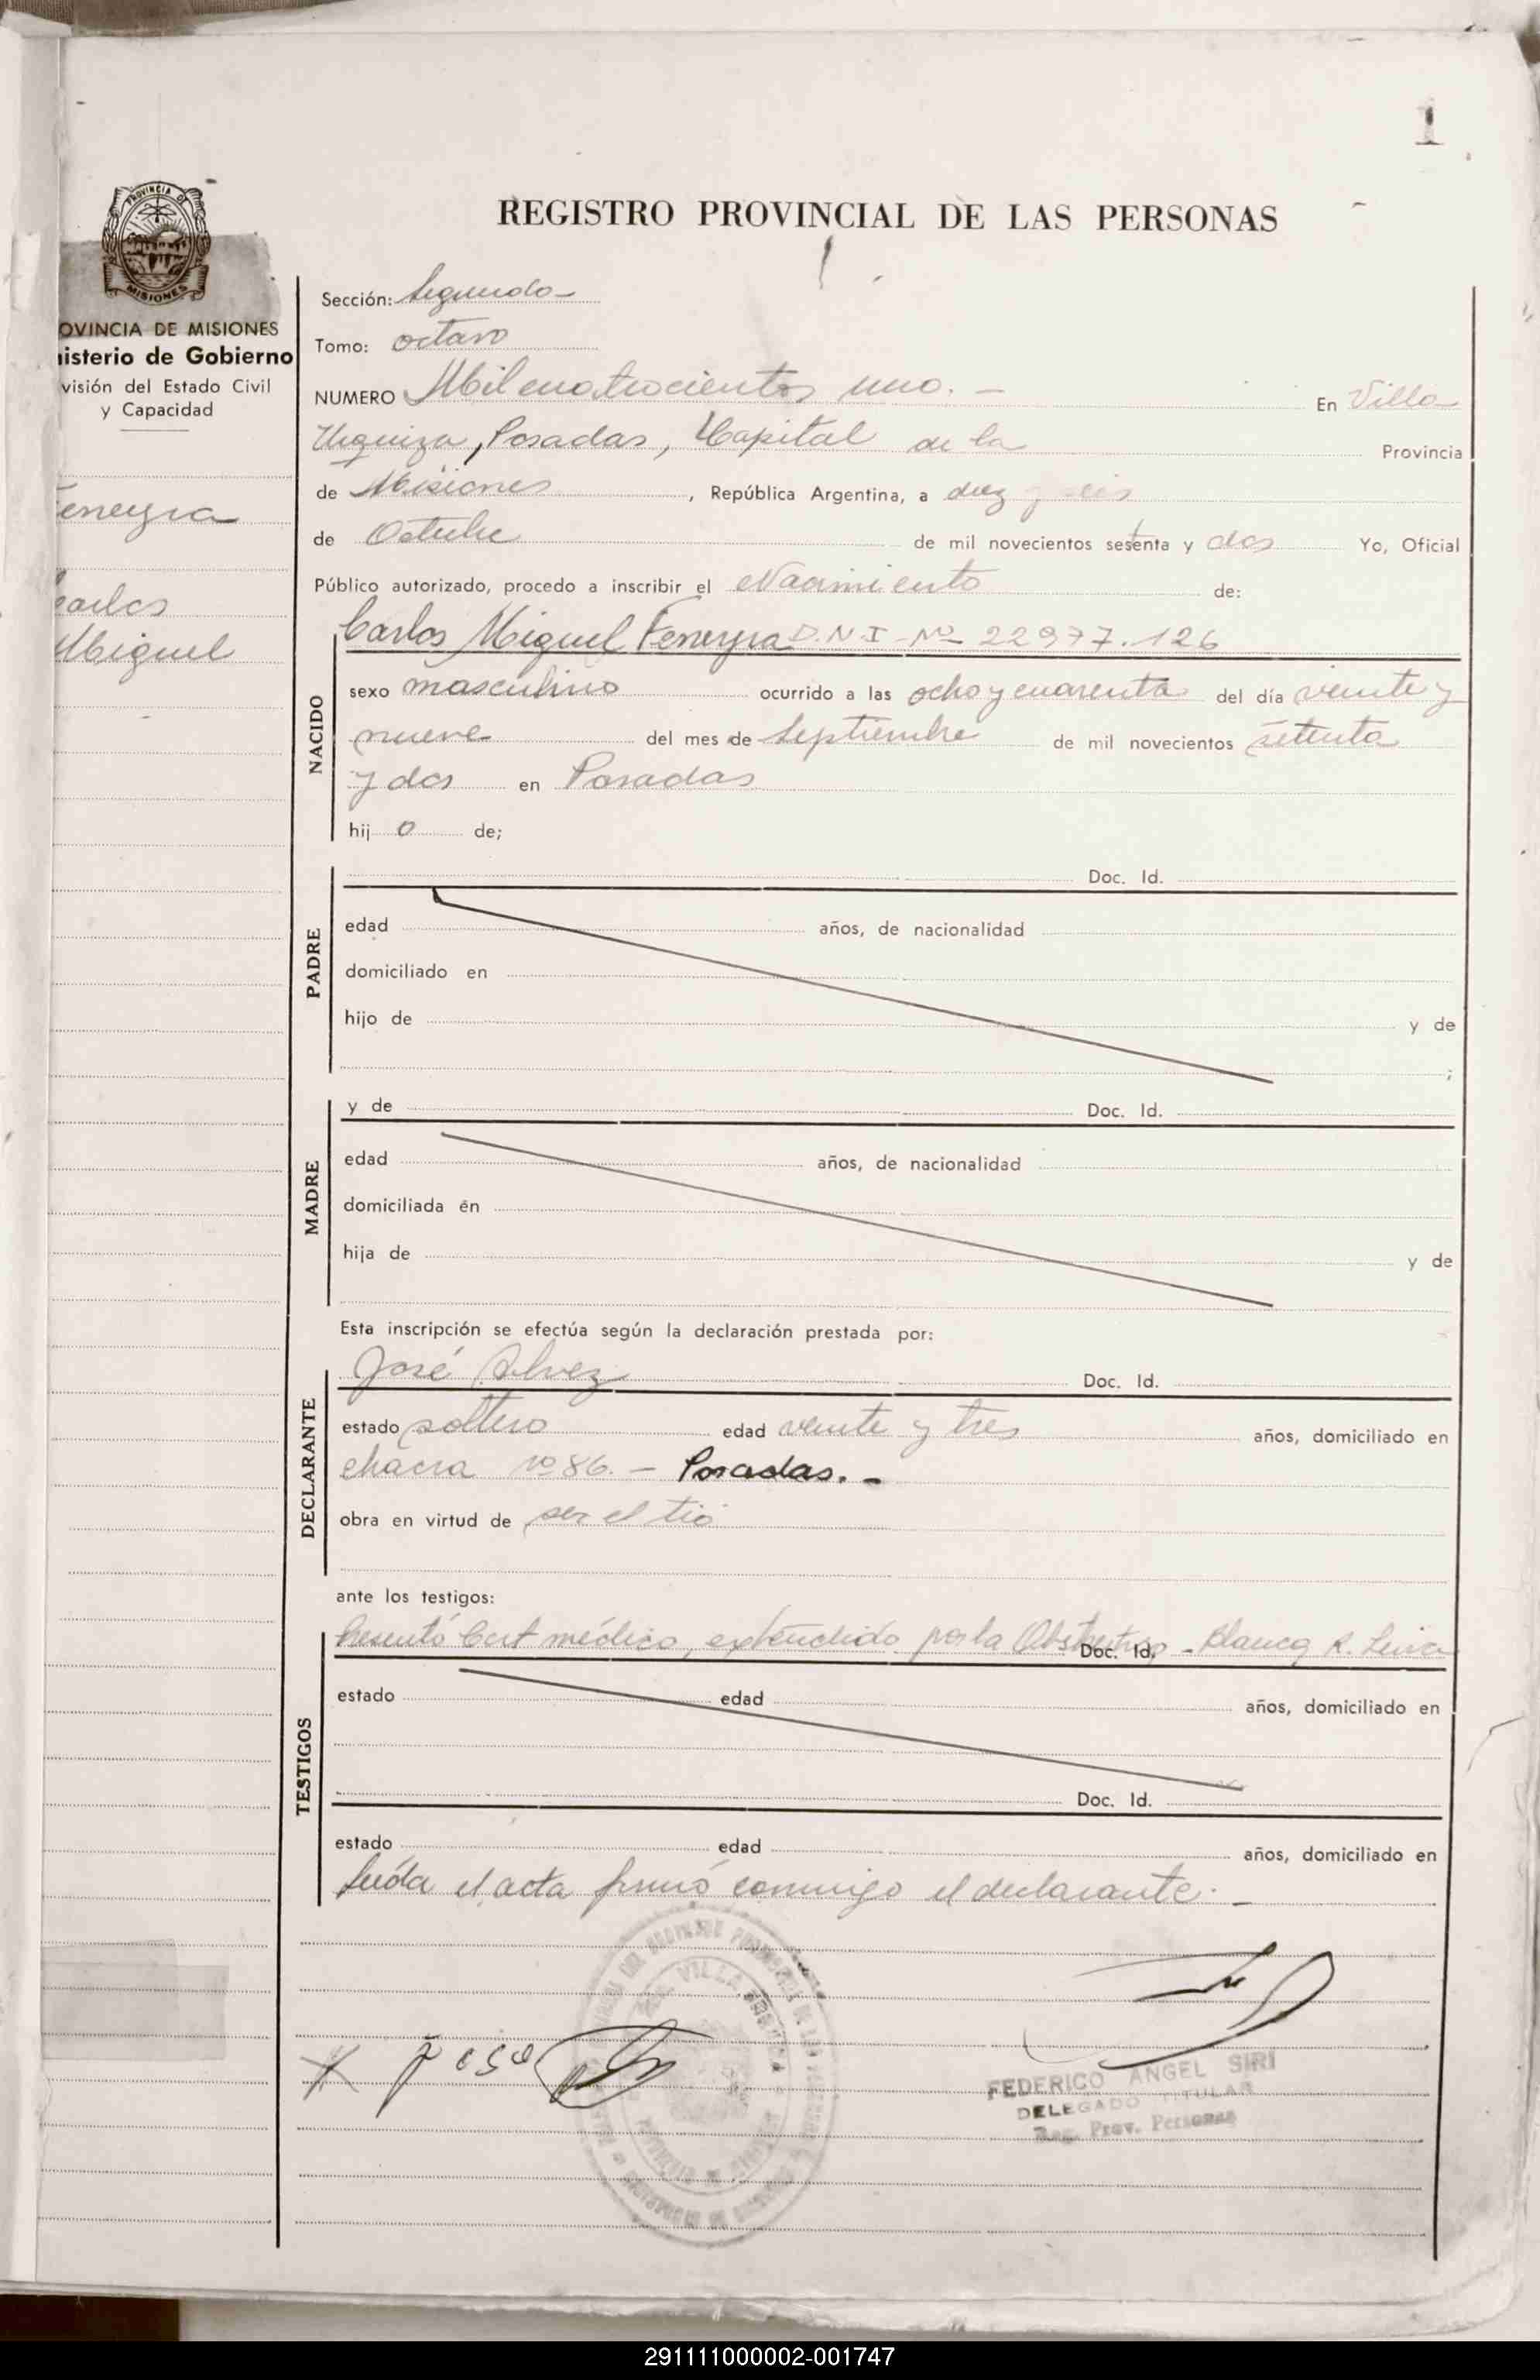 1
PROVINCIA DE
MISIONES
OVINCIA DE MISIONES
isterio de Gobierno
visión del Estado Civil
y Capacidad
Fereyra
Carlos
Miguel
REGISTRO PROVINCIAL DE LAS PERSONAS
Sección: Segundo -
Tomo: octavo
NUMERO Mil cuatrocientos uno. - En Villa
Urquiza, Posadas, Capital de la Provincia
de Misiones, República Argentina, a diez y seis
de Octubre de mil novecientos sesenta y dos Yo, Oficial
Público autorizado, procedo a inscribir el Nacimiento de:
NACIDO
Carlos Miguel Fereyra D.N.I - Nº 22977.126
sexo masculino ocurrido a las ocho y cuarenta del día veinte y
nueve del mes de Septiembre de mil novecientos setenta
y dos en Posadas
hij o de;
PADRE
Doc. Id.
edad años, de nacionalidad
domiciliado en
hijo de y de
;
MADRE
y de Doc. Id.
edad años, de nacionalidad
domiciliada en
hija de y de
Esta inscripción se efectúa según la declaración prestada por:
DECLARANTE
José Alvez Doc. Id.
estado soltero edad veinte y tres años, domiciliado en
chacra nº 86. - Posadas. -
obra en virtud de ser el tio
ante los testigos:
TESTIGOS
Presentó Cert médico, extendido por la Obstetriz - Blanca R. Doc. Id.
estado edad años, domiciliado en
Doc. Id.
estado edad años, domiciliado en
Leída el acta firmó conmigo el declarante. -
VILLA
FEDERICO ANGEL SIRI
DELEGADO TITULAR
Reg. Prov. Personas
291111000002-001747